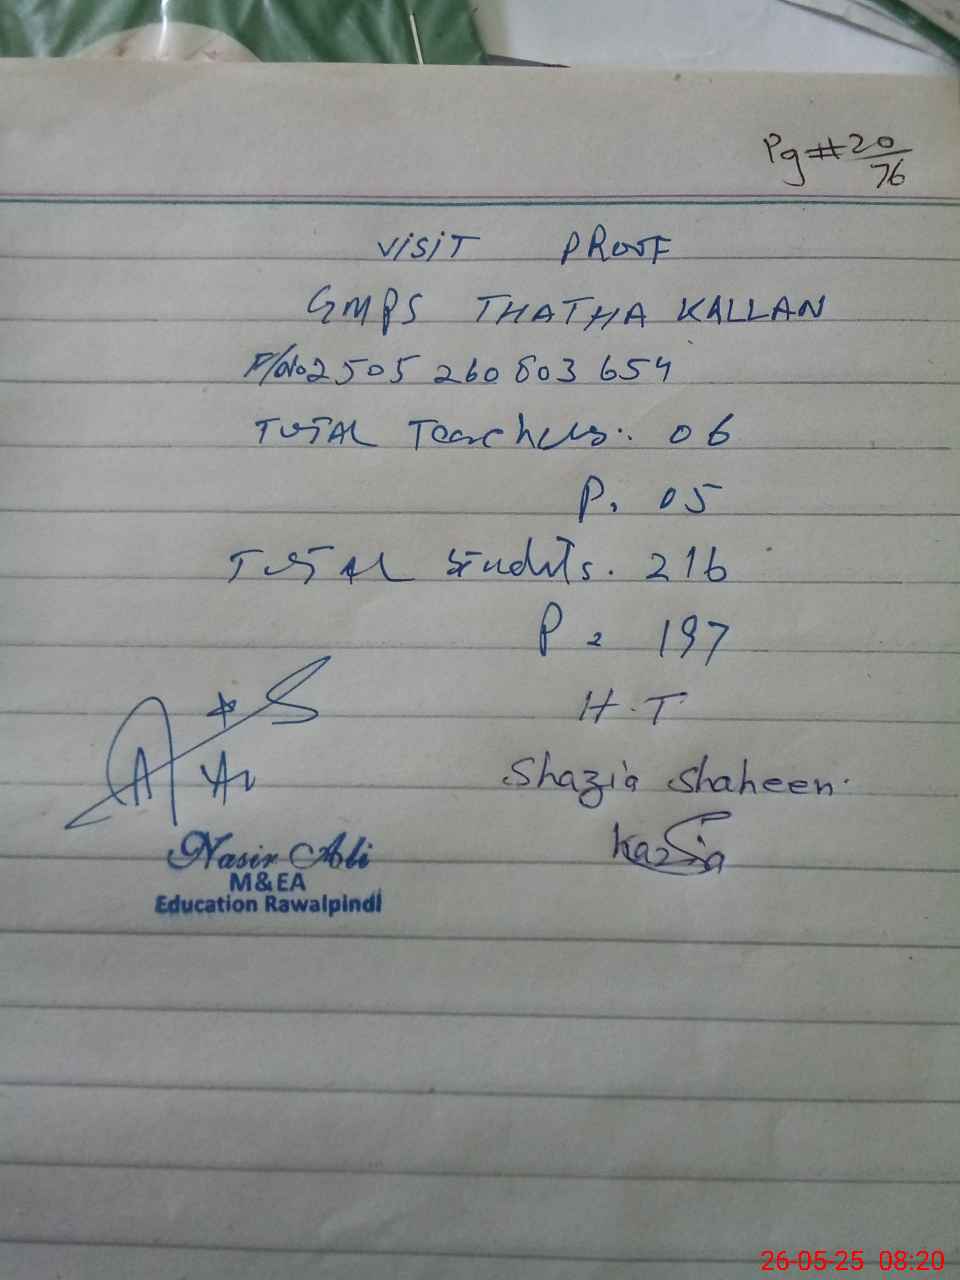 Pg # 20/76
VISIT PROOF
GMPS THATHA KALLAN
F/No 2505 260803654
TOTAL Teachers. 06
P. 05
TOTAL Students. 216
P = 197
H.T
Shazia Shaheen.
Nasir Ali
M&EA
Education Rawalpindi
26-05-25 08:20